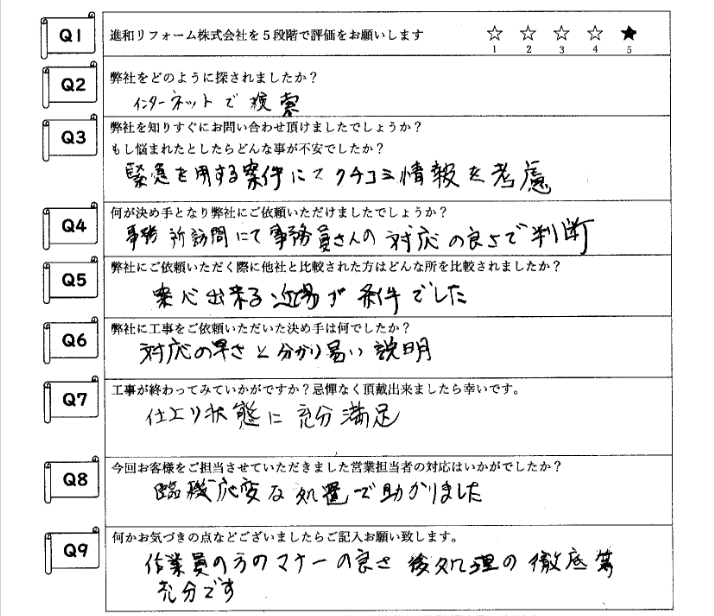 Q1
進和リフォーム株式会社を5段階で評価をお願いします
☆ ☆ ☆ ☆ ★
1 2 3 4 5
Q2
弊社をどのように探されましたか？
インターネットで検索
Q3
弊社を知りすぐにお問い合わせ頂けましたでしょうか？
もし悩まれたとしたらどんな事が不安でしたか？
緊急を用する案件にてクチコミ情報を考慮
Q4
何が決め手となり弊社にご依頼いただけましたでしょうか？
事務所訪問にて事務員さんの対応の良さで判断
Q5
弊社にご依頼いただく際に他社と比較された方はどんな所を比較されましたか？
安心出来る近場が条件でした
Q6
弊社に工事をご依頼いただいた決め手は何でしたか？
対応の早さと分かり易い説明
Q7
工事が終わってみていかがですか？忌憚なく頂戴出来ましたら幸いです。
仕上り状態に充分満足
Q8
今回お客様をご担当させていただきました営業担当者の対応はいかがでしたか？
臨機応変な処置で助かりました
Q9
何かお気づきの点などございましたらご記入お願い致します。
作業員の方のマナーの良さ 後処理の徹底等
充分です